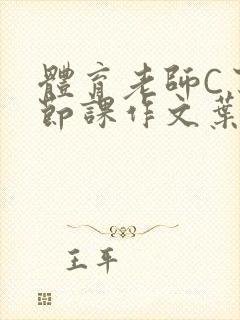 體育老師C
節課作文葉
王平